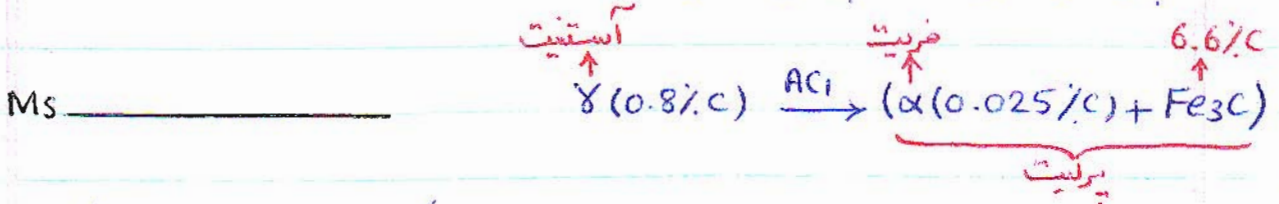 آستنیت فریت 6.6%C
Ms γ(0.8%C) AC₁ → (α(0.025%C) + Fe₃C)
پرلیت